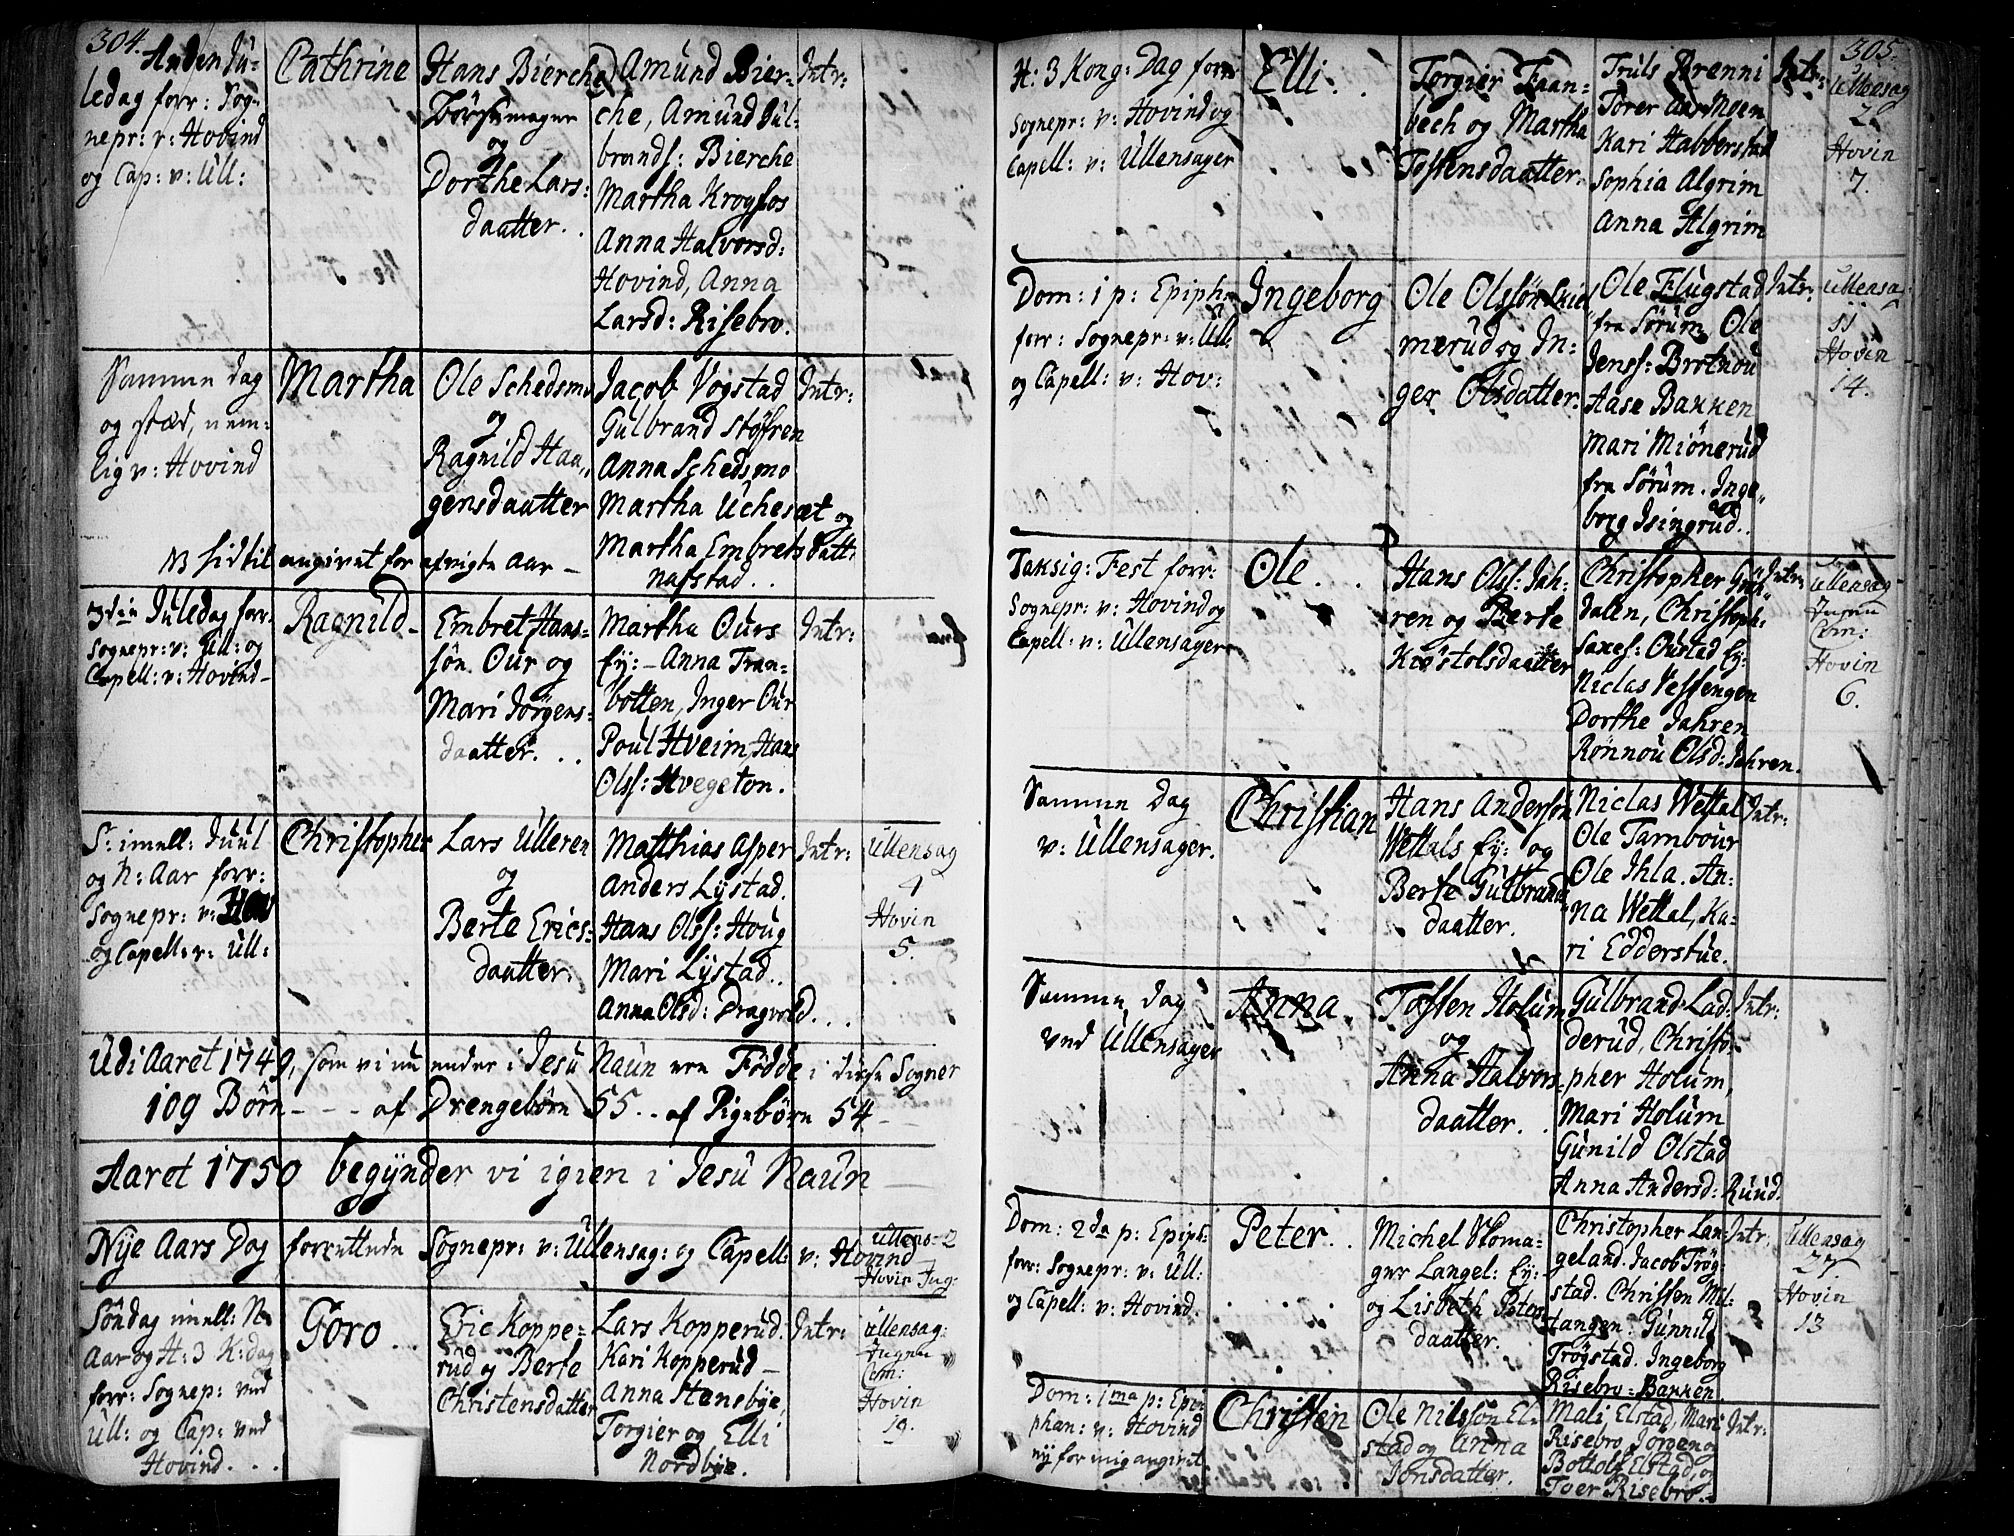 304.
Anden Ju-
ledag forr: Sog-
nepr: v: Hovind
og Cap: v: Ull:
Cathrine
Hans Bierche
og
Dorthe Lars:
daatter. .
Amund Bier-
che, Amund Gul-
brands: Bierche
Martha Krogfos
Anna Halvorsd:
Hovind, Anna
Larsd: Risebro.
Intr:
Samme dag
og stæd, nem:
lig v: Hovind
Martha
Ole Schedsmo
og
Ragnild Haa-
gensdaatter
Jacob Vogstad
Gulbrand Støfren
Anna Schedsmo
Martha Uchesæt og
Martha Embrets Datt:
Nafstad. .
Intr:
angivet for afvigte Aar -
3die Juledag forr:
Sognepr: v: Ull: og
Capell: v: Hovind -
Ragnild -
Embret Hans-
søn Our og
Mari Jörgens:
daatter. . .
Martha Ours
Ey: - Anna Tran-
botten, Inger Our
Poul Hveim, Hans
Olss: Hvegeton.
Intr:
S: imell: Juul
og N: Aar forr:
Sognepr: v: Hov
og Capell: v: Ull:
Christopher
Lars Ulleren
og
Berte Erics:
daatter.
Matthias Asper
Anders Lystad.
Hans Olss: Houg
Mari Lystad. .
Anna Olsd: Dragvold. . .
Intr:
Ullensag
4
Hovin
5.
Udi Aaret 1749, som vi nu ender i Jesu Naun ere Födde i disse Sogner
109 Börn - - - af Drengebörn 55 . . af Pigebörn 54 -
Aaret 1750 begÿnder vi igien i Jesu Naun
Nÿe Aars Dag forrettede Sognepr: v: Ullensag: og Capell: v: Hovind
Ullens - 2
Hovin Ing:
Söndag imell: N:
Aar og H: 3 K: dag
forr: Sognep: ved
Ull: og Cap: ved
Hovind. . .
Goro . .
Eric Koppe-
rud og Berte
Christensdatter
Lars Kopperud.
Kari Kopperud -
Anna Stensbÿe,
Torgier og Elli
Nordbÿe.
Intr:
Ullensag:
Ingen
Com:
Hovin
19.
305.
H: 3 Kong: Dag forr:
Sognepr: v: Hovind og
Capell: v: Ullensager
Elli . .
Torgier Faan-
bech og Martha
Tostensdaatter.
Truls Brenni
Torer Aas Moen
Kari Habberstad
Sophia Algrim
Anna Algrim
Intr:
Ullensag
2
Hovin
7.
Dom: 1 p: Epiph:
forr: Sognepr: v: Ull:
og Capell: v: Hov:
Ingeborg
Ole Olssön Skie-
merud og In-
ger Olsdatter.
Ole Flugstad
fra Sörum, Ole
Jenss: Brotnou
Aase Bakken
Mari Miönerud
fra Sörum. Inge-
borg Isingrud.
Intr:
Ullensa:
11
Hovin
14.
Taksig: Fest forr:
Sognepr: v: Hovind og
Capell: v: Ullensager
Ole . .
Hans Olss: Jah-
ren og Berte
Kristolsdaatter
Christopher
dalen, Christoph:
Saxes: Oustad Ey:
Niclas Vessengen
Dorthe Jahren
Rönnou Olsd: Jahren.
Intr:
Ullensag
Ingen
Com:
Hovin
6.
Samme dag
v: Ullensager.
Christian
Hans Anderson
Wettals Ey: og
Berte Gulbrands
daatter.
Niclas Wettal
Ole Tambour
Ole Ihla. An-
na Wettal, Ka-
ri Edderstue.
Intr:
Samme dag
ved Ullensager
Anna.
Tosten Holum
og
Anna Halvors
daatter. .
Gulbrand Lad-
derud, Christo-
pher Holum,
Mari Holum
Gunild Olstad
Anna Andersd: Ruud.
Intr:
Dom: 2da p: Epiph:
forr: Sognepr: v: Ull:
og Capell: v: Hovind.
Peter. .
Michel Skoma-
ger Langel: Ey:
og Lisbeth Peters
daatter.
Christopher Lan-
geland. Jacob Trög-
stad. Christen Mel-
tangen. Gunnild
Trögstad. Ingeborg
Risebro-Bakken.
Intr:
Ullensag
27
Hovin
13
Dom: 1ma p: Epi-
phan: v: Hovind
nÿ for mig angivet
Christen
Ole Nilssön El-
stad og Anna
Jonsdatter.
Mali Elstad, Mari
Risebro, Jörgen og
Bottolf Elstad, og
Toer Risebro. -
Intr: